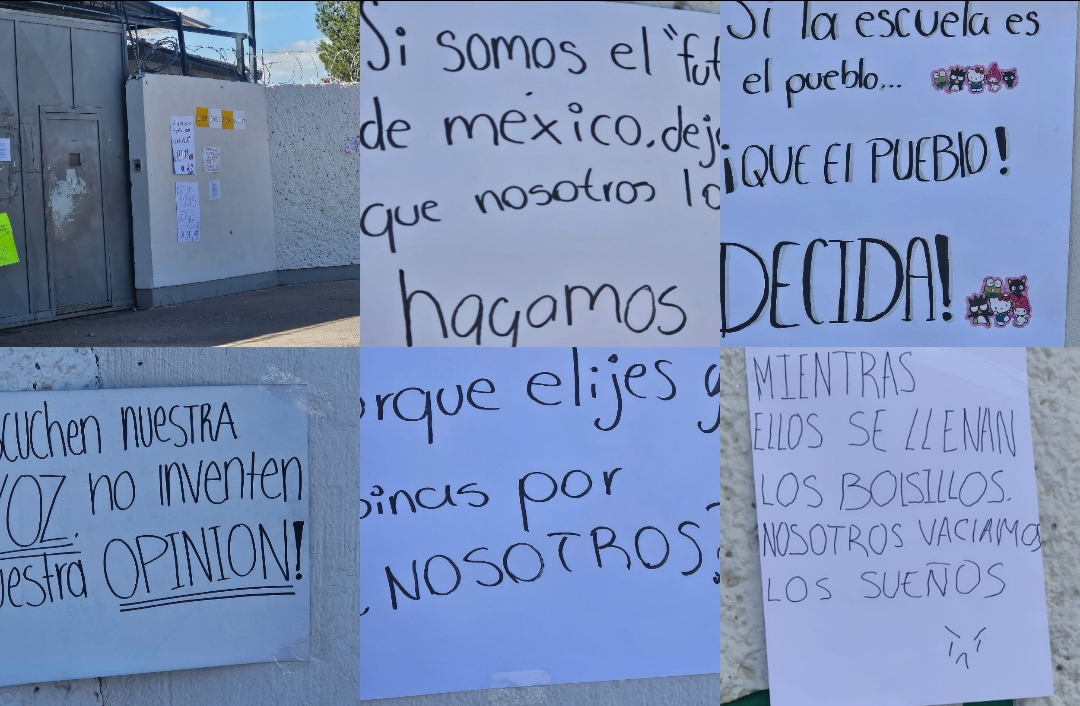 Si somos el "fut
de méxico, dej
que nosotros lo
hagamos
Si la escuela es
el pueblo...
¡QUE El PUEBlO!
DECIDA!
scuchen NUESTRA
VOZ. no inventen
uestra OPINION!
orque elijes y
pinas por
NOSOTROS?
MIENTRAS
ELLOS SE LLENAN
LOS BOLSILLOS.
NOSOTROS VACIAMOS
LOS SUEÑOS